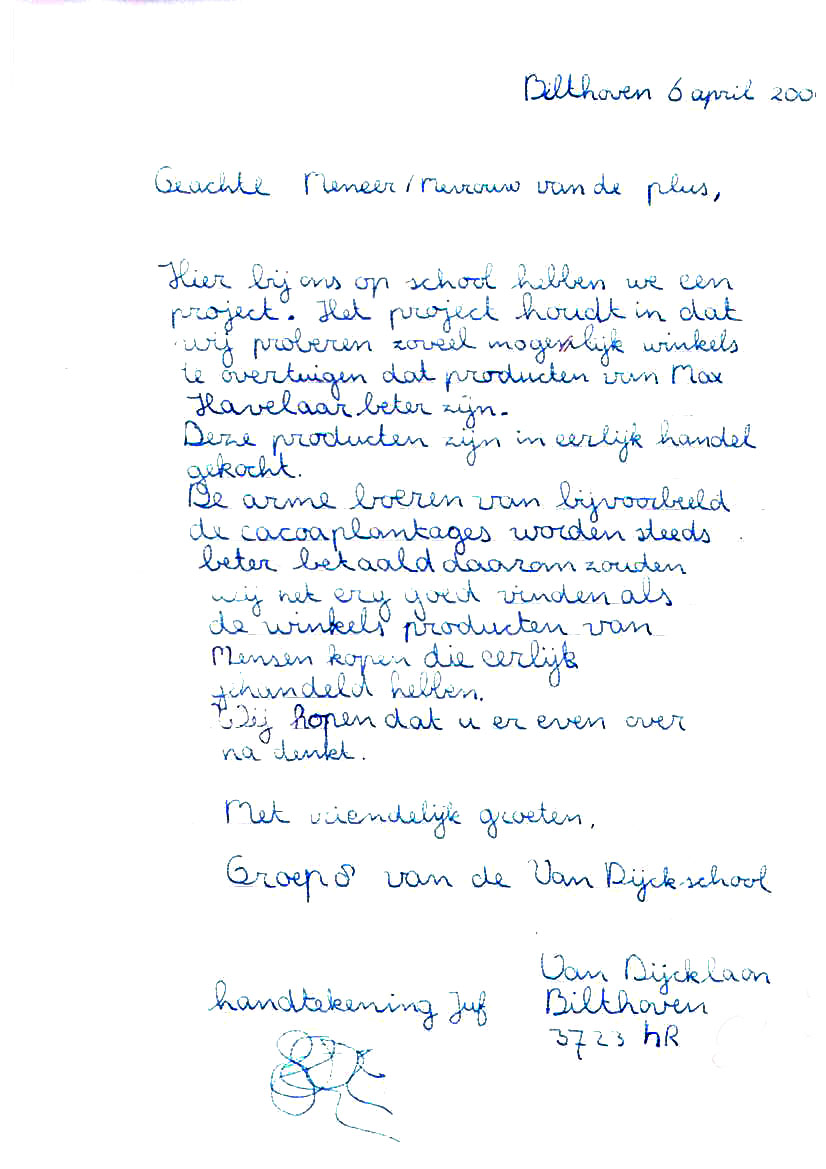 Bilthoven 6 april 200
Geachte Meneer / Mevrouw van de plus,
Hier bij ons op school hebben we een
project. Het project houdt in dat
wij proberen zoveel mogenlijk winkels
te overtuigen dat producten van Max
Havelaar beter zijn.
Deze producten zijn in eerlijk handel
gekocht.
De arme boeren van bijvoorbeeld
de cacoaplantages worden steeds
beter betaald daarom zouden
wij het erg goed vinden als
de winkels producten van
Mensen kopen die eerlijk
gehandeld hebben.
Wij hopen dat u er even over
na denkt.
Met vriendelijk groeten,
Groep 8 van de Van Dijckschool
Van Dijcklaan
handtekening Juf Bilthoven
3723 hR